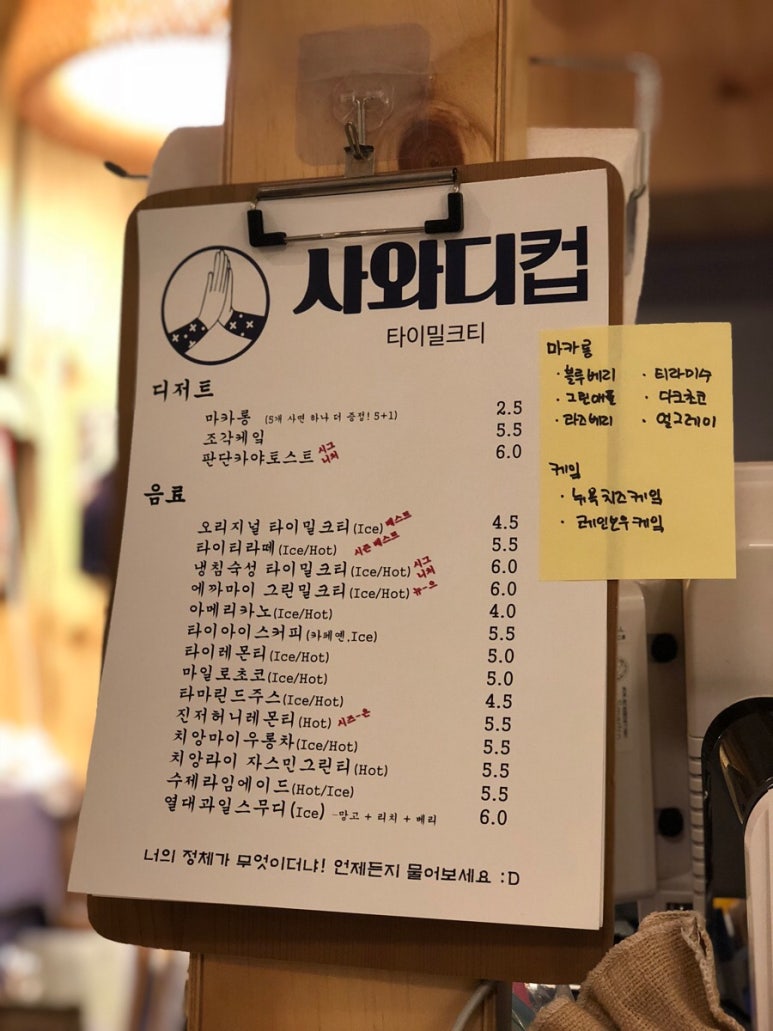 사와디컵
타이밀크티
디저트
마카롱 (5개 사면 하나 더 증정! 5+1) 2.5
조각케잌 5.5
판단카야토스트 시그니처 6.0
음료
오리지널 타이밀크티(Ice) 베스트 4.5
타이티라떼(Ice/Hot) 시즌 베스트 5.5
냉침숙성 타이밀크티(Ice/Hot) 시그니처 6.0
에까마이 그린밀크티(Ice/Hot) 뉴-으 6.0
아메리카노(Ice/Hot) 4.0
타이아이스커피(카페옌.Ice) 5.5
타이레몬티(Ice/Hot) 5.0
마일로초코(Ice/Hot) 5.0
타마린드주스(Ice/Hot) 4.5
진저허니레몬티(Hot) 시즈-은 5.5
치앙마이우롱차(Ice/Hot) 5.5
치앙라이 자스민그린티(Hot) 5.5
수제라임에이드(Hot/Ice) 5.5
열대과일스무디(Ice) -망고 + 리치 + 베리 6.0
너의 정체가 무엇이더냐! 언제든지 물어보세요 :D
마카롱
· 블루베리 · 티라미수
· 그린애플 · 다크초코
· 라즈베리 · 얼그레이
케잌
· 뉴욕치즈케잌
· 레인보우케잌